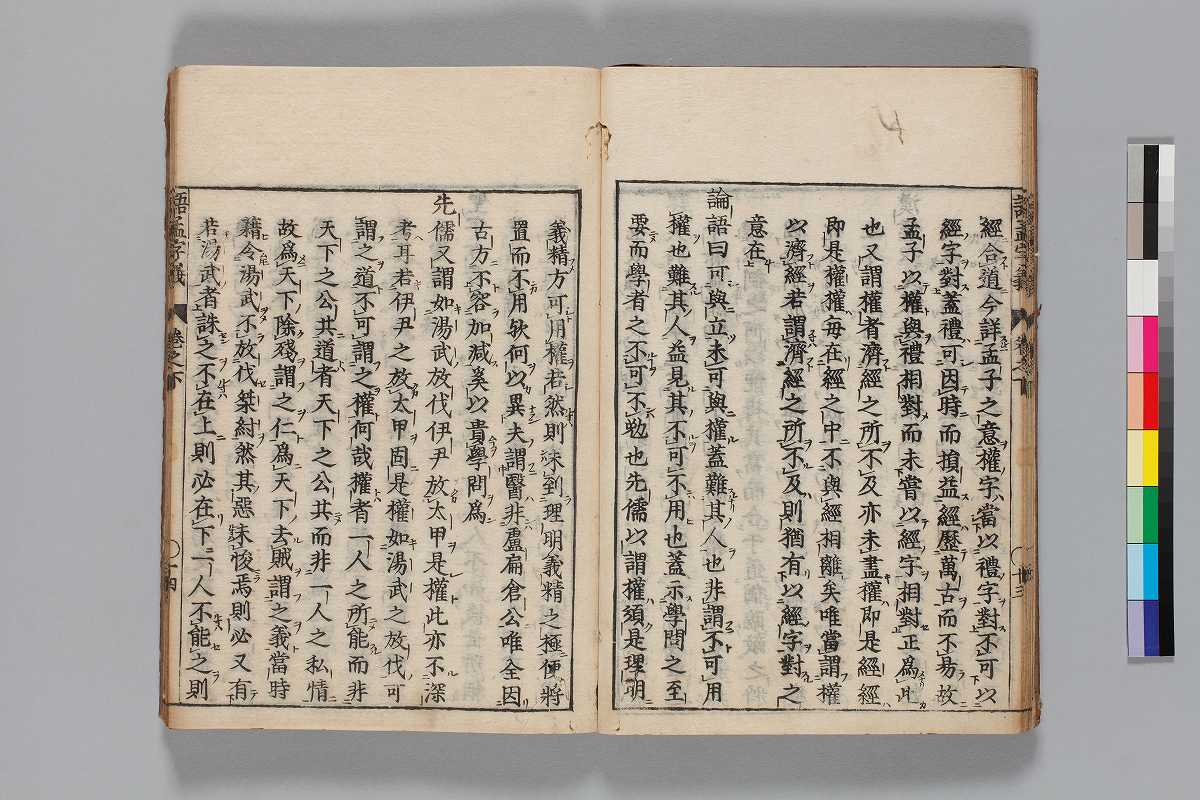 經合道今詳孟子之意權字當以禮字對不可以
經字對蓋禮可因時而損益經歷萬古而不易故
孟子以權與禮相對而未嘗以經字相對正爲此
也又謂權者濟經之所不及亦未盡權即是經經
即是權權每在經之中不與經相離矣唯當謂權
以濟經若謂濟經之所不及則猶有以經字對之
意在
論語曰可與立未可與權蓋難其人也非謂不可用
權也難其人益見其不可不用也蓋示學問之至
要而學者之不可不勉也先儒以謂權須是理明
義精方可用權若然則未到理明義精之極便將
置而不用歟何以異夫謂醫非盧扁倉公唯全因
古方不容加減奚以貴學問爲
先儒又謂如湯武放伐伊尹放太甲是權此亦不深
考耳若伊尹之放太甲固是權如湯武之放伐可
謂之道不可謂之權何哉權者一人之所能而非
天下之公共道者天下之公共而非一人之私情
故爲天下除殘謂之仁爲天下去賊謂之義當時
藉令湯武不放伐桀紂然其惡未悛焉則必又有
若湯武者誅之不在上則必在下一人不能之則
語孟字義
卷之下
十四